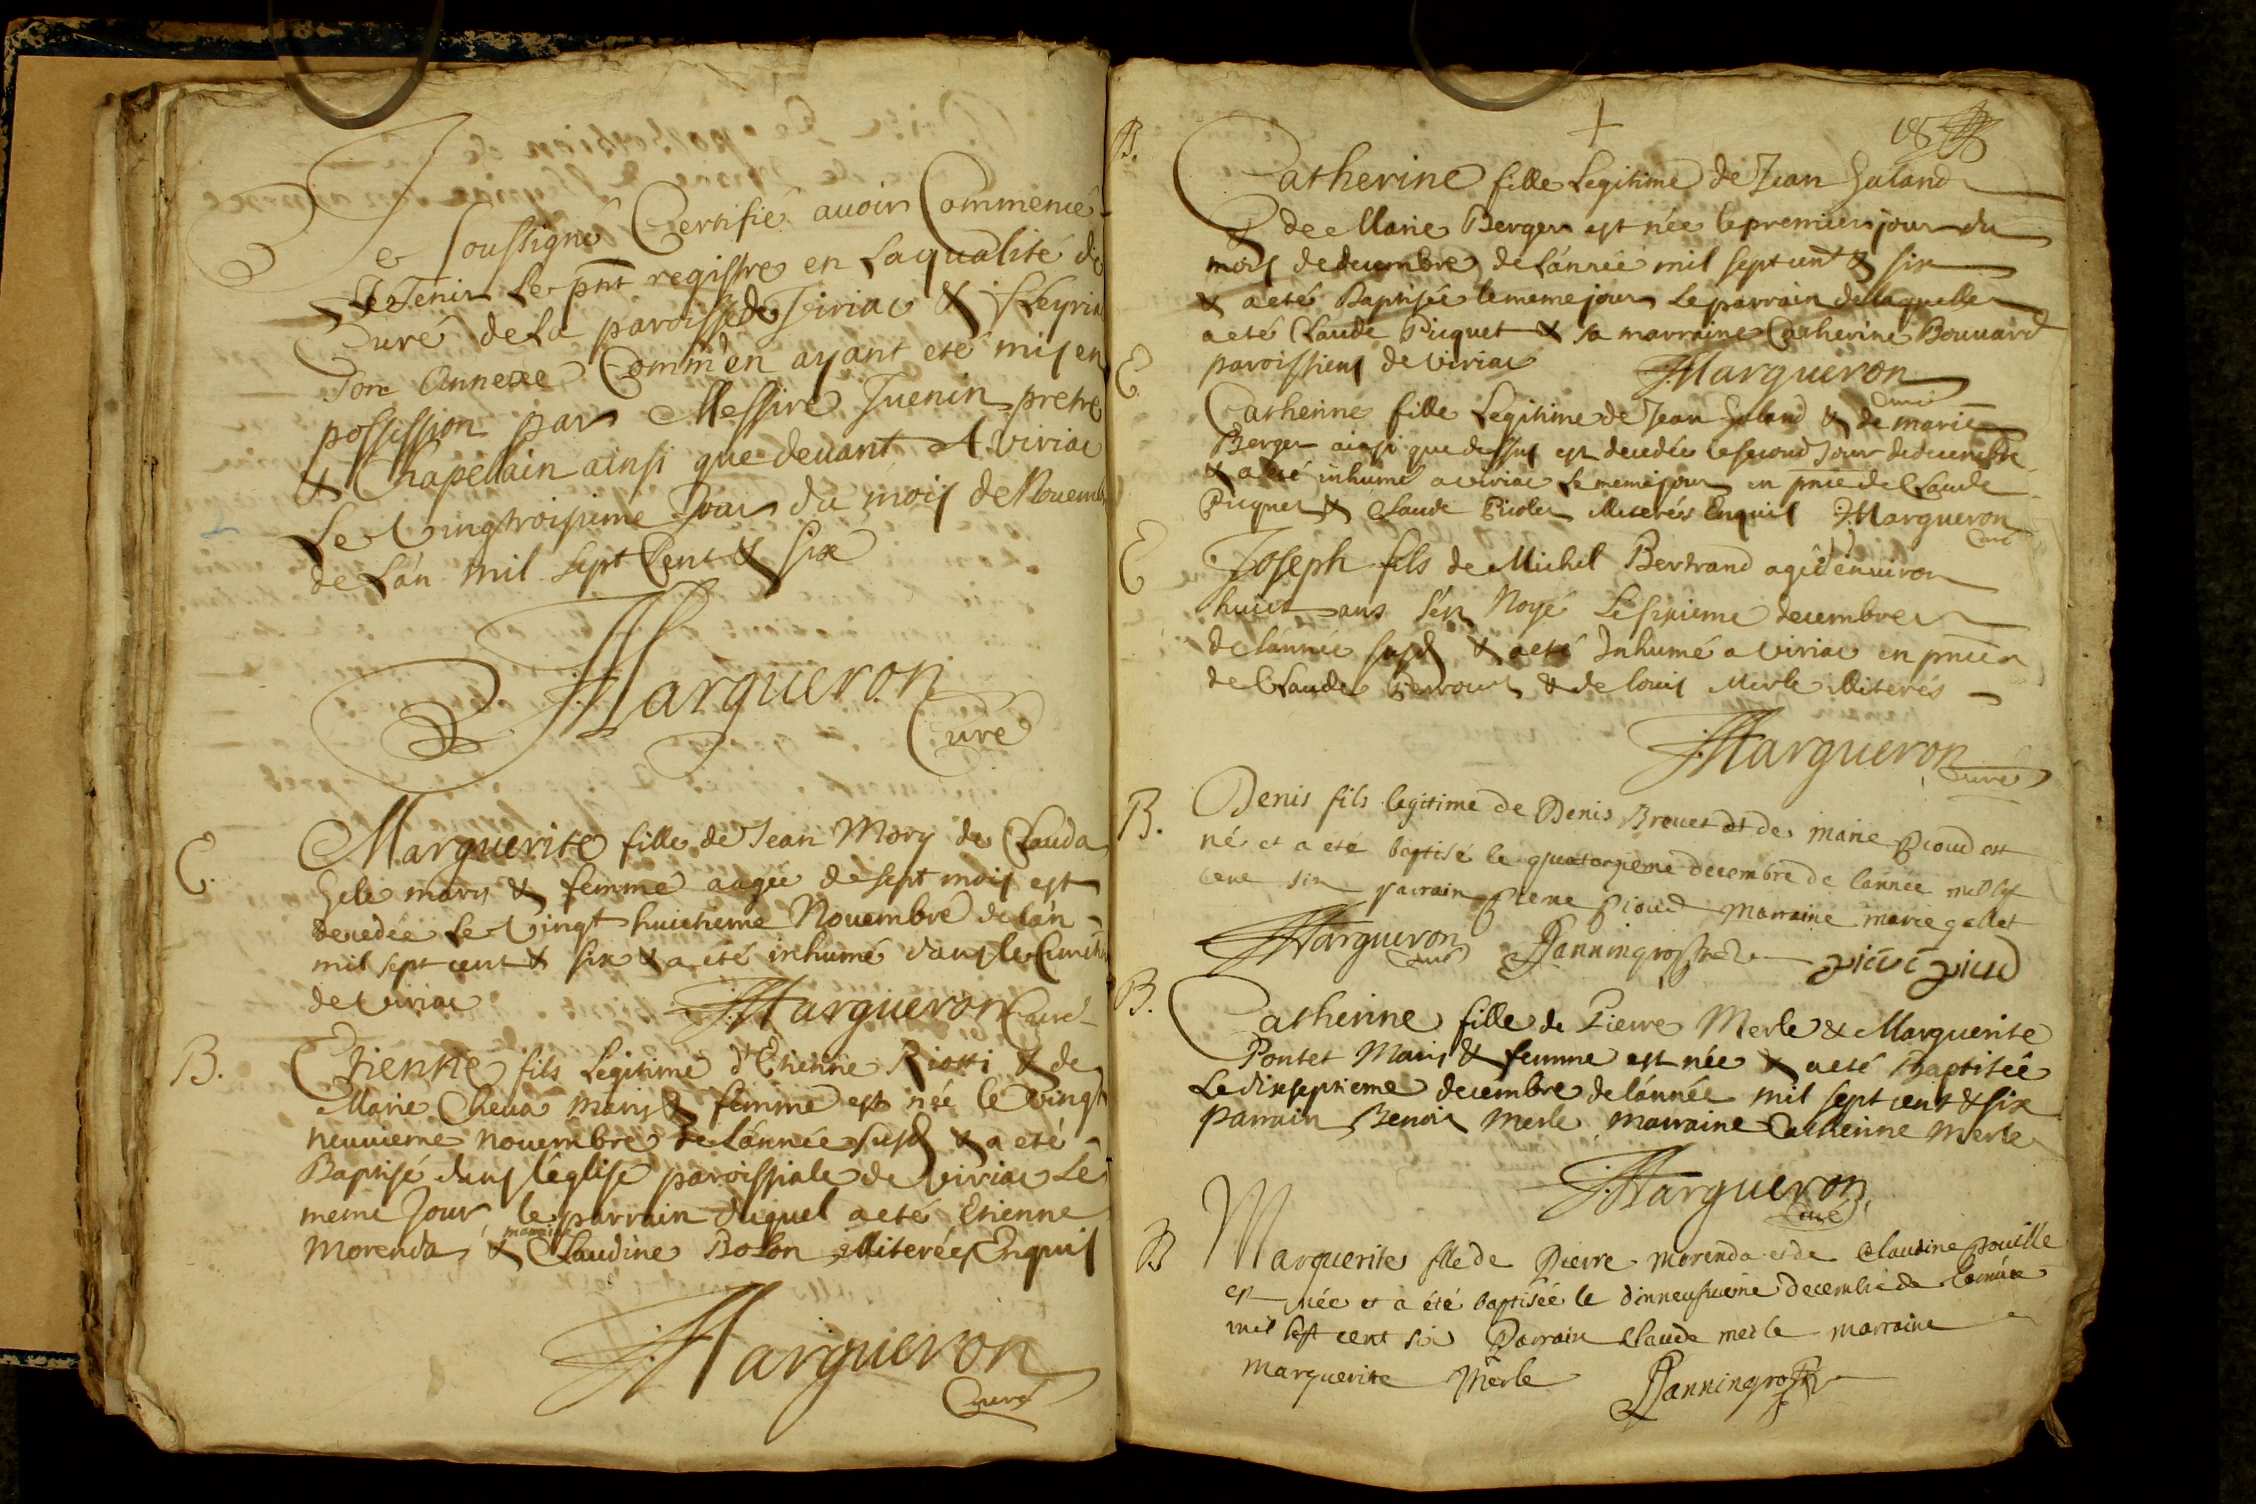 Je soussigné Certifie auoir Commencé
De Tenir Le pnt registre en La qualité de
Curé de La paroisse de Viriac & Fleyria
son Annexe Comm'en ayant eté mis en
possession par Messire Juenin pretre
& Chapellain ainsi que deuant A Viriac
Le Vingtroisieme Jour du mois de Nouemb
de L'an mil sept Cent & six
Margueron
Curé
E.
Marguerite fille de Jean Mory de Clauda
Gele marys & femme aagée de sept mois est
decedée Le Vingt huictieme Nouembre de l'an
mil sept cent & six & a eté inhumé dans le Cimeti
de Viriac Margueron Curé
B.
Etienne fils Legitime d'Etienne & de
Marie Cheua marys & femme est née le vingt
neuuieme nouembre de L'année susd & a eté
Baptisé dans l'eglise paroissiale de Viriac Le
meme Jour le parrain duquel a eté Etienne
marraine
Morenda & Claudine Bolon illiterées Enquis
Margueron
Curé
B.
Catherine fille Legitime de Jean Galand
& de Marie Berger est née le premier jour du
mois de decembre de L'année mil sept cent & six
& a eté Baptisée le meme jour Le parrain de laquelle
a eté Claude Picquet & sa marraine Catherine Bouuard
paroissiens de Viriac Margueron
Curé
E.
Catherine fille Legitime de Jean Galand & de marie
Berger ainsi que dessus est decedée le second Jour de decembre
& a eté inhumé a Viriac Le meme jour en pnce de Claude
Picquet & Claude illiterés Enquis Margueron
Curé
E
Joseph fils de Michel Bertrand agé d'enuiron
huict ans s'est Noyé Le sixieme decembre
de L'année susd & a eté Inhumé a Viriac en pnce
de Claude & de louis Merle illiterés
Margueron
Curé
B.
Denis fils legitime de Denis Breuet et de marie Pioud est
né et a eté baptisé le quatorzieme decembre de l'année mil sept
cent six parrain Pierre Pioud Marraine marie gallet
Margueron
Curé
B.
Catherine fille de Pierre Merle & Marguerite
Pontet Marys & femme est née & a eté Baptisée
Le dixseptieme decembre de L'année mil sept cent & six
Parrain Benoit Merle Marraine Catherine Merle
Margueron
Curé
B
Marguerite fille de Pierre morenda et de Claudine pouille
est née et a été baptisée le dixneufuieme decembre de L'année
mil sept cent six Parrain Claude merle marraine
Marguerite Merle